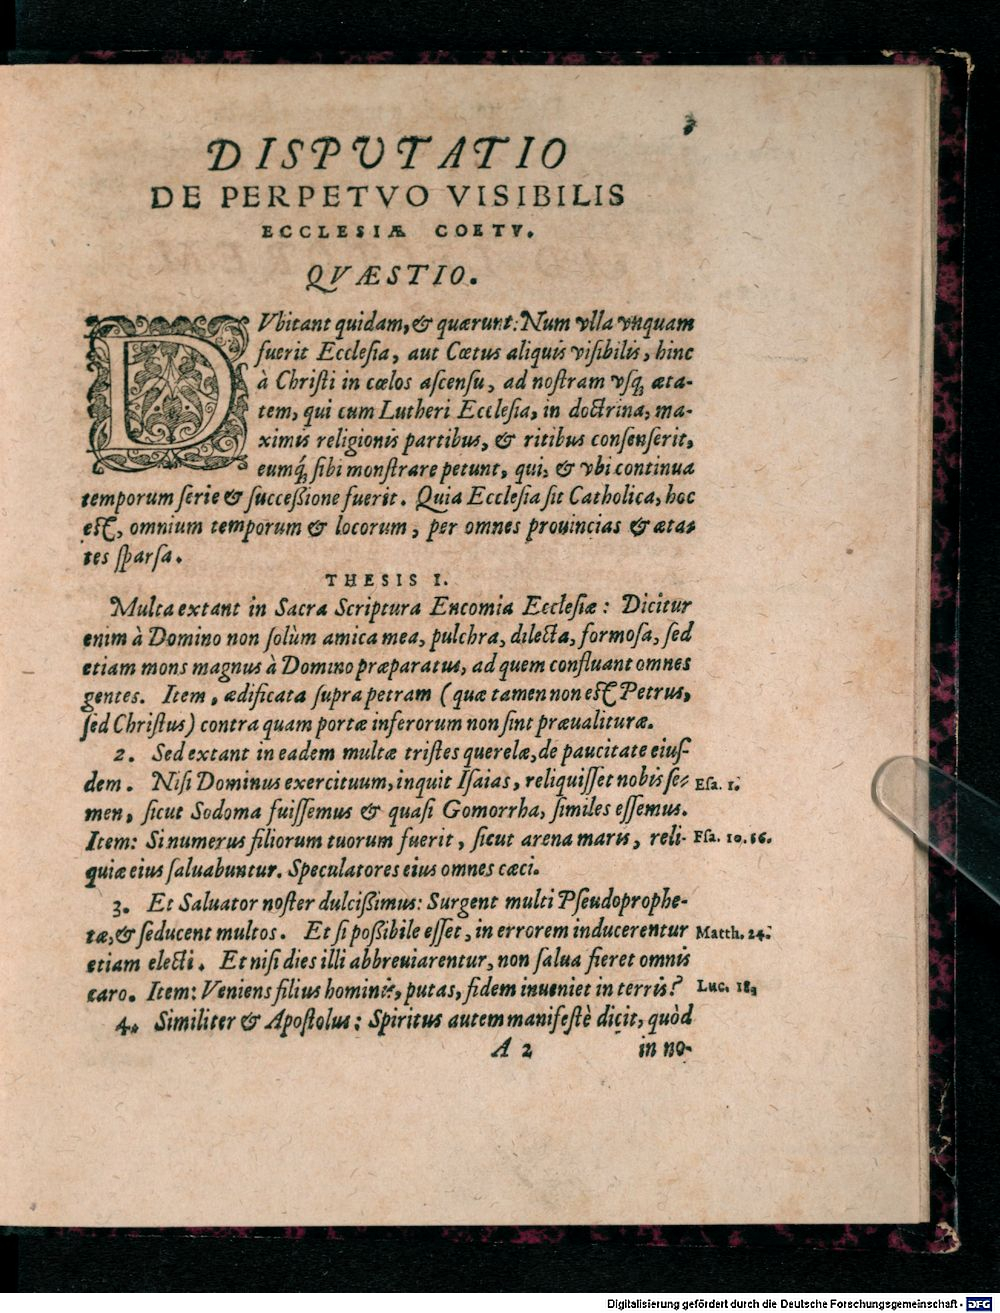 3
DISPVTATIO
DE PERPETVO VISIBILIS
ECCLESIÆ COETV.
QVÆSTIO.
DVbitant quidam, & quærunt: Num vlla vnquam
fuerit Ecclesia, aut Cœtus aliquis visibilis, hinc
à Christi in cœlos ascensu, ad nostram vsq́; æta-
tem, qui cum Lutheri Ecclesia, in doctrina, ma-
ximis religionis partibus, & ritibus consenserit,
eumq́; sibi monstrare petunt, qui, & vbi continua
temporum serie & successione fuerit. Quia Ecclesia sit Catholica, hoc
est, omnium temporum & locorum, per omnes prouincias & æta-
tes sparsa.
THESIS I.
Multa extant in Sacra Scriptura Encomia Ecclesiæ: Dicitur
enim à Domino non solùm amica mea, pulchra, dilecta, formosa, sed
etiam mons magnus à Domino præparatus, ad quem confluant omnes
gentes. Item, ædificata supra petram (quæ tamen non est Petrus,
sed Christus) contra quam portæ inferorum non sint præualituræ.
2. Sed extant in eadem multæ tristes querelæ, de paucitate eius-
dem. Nisi Dominus exercituum, inquit Isaias, reliquisset nobis se- Esa. 1.
men, sicut Sodoma fuissemus & quasi Gomorrha, similes essemus.
Item: Si numerus filiorum tuorum fuerit, sicut arena maris, reli- Esa. 10. 56.
quiæ eius saluabuntur. Speculatores eius omnes cæci.
3. Et Saluator noster dulcissimus: Surgent multi Pseudoprophe-
tæ, & seducent multos. Et si possibile esset, in errorem inducerentur Matth. 24.
etiam electi. Et nisi dies illi abbreuiarentur, non salua fieret omnis
caro. Item: Veniens filius hominis, putas, fidem inueniet in terris? Luc. 18,
4. Similiter & Apostolus: Spiritus autem manifestè dicit, quòd
A 2 in no-
Digitalisierung gefördert durch die Deutsche Forschungsgemeinschaft - DFG